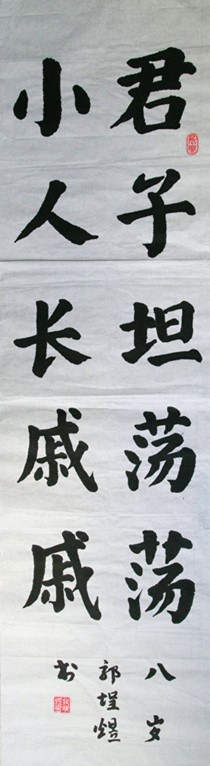 君子坦荡荡
小人长戚戚
八岁
郭埕煜
书